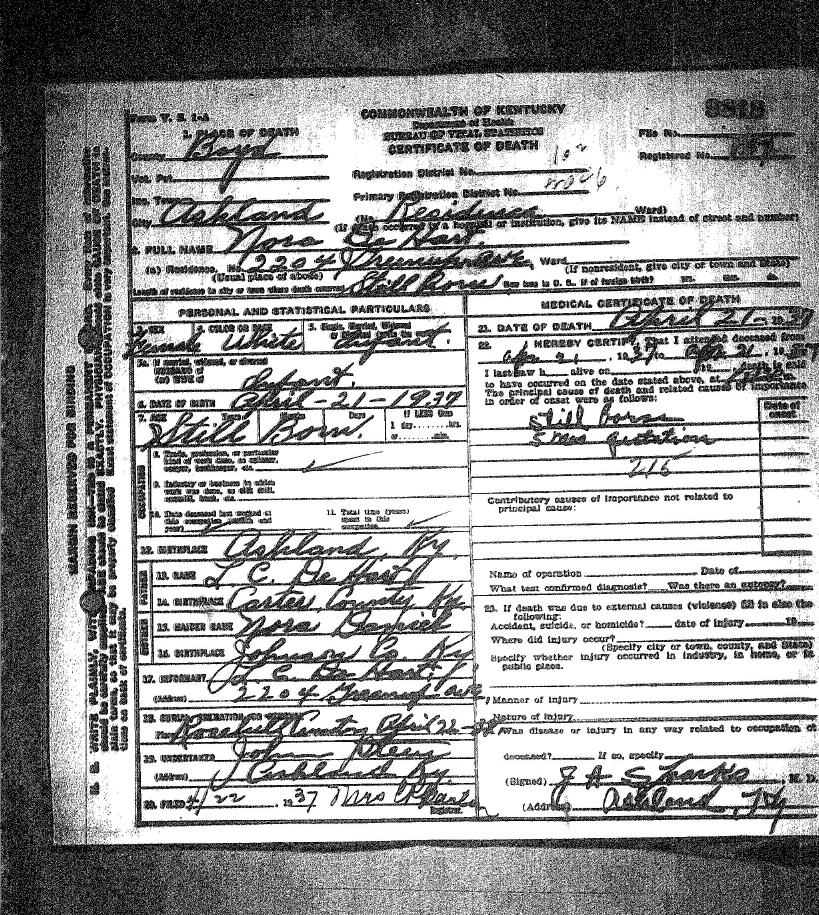 Form V. S. 1-A
COMMONWEALTH OF KENTUCKY
Department of Health
BUREAU OF VITAL STATISTICS
CERTIFICATE OF DEATH
File No.
Registered No.
1. PLACE OF DEATH
County Boyd
Vot. Pct.
Inc. Town
City Ashland
Registration District No. 102
Primary Registration District No.
(No. Residence Ward)
(If death occurred in a hospital or institution, give its NAME instead of street and number)
2. FULL NAME Nora De Hart
(a) Residence. No. 2204 Greenup Ave, Ward
(Usual place of abode) (If nonresident, give city or town and State)
Length of residence in city or town where death occurred Still Born How long in U. S., if of foreign birth? yrs. mos. ds.
PERSONAL AND STATISTICAL PARTICULARS
3. SEX Female
4. COLOR OR RACE White
5. Single, Married, Widowed Infant
5a. If married, widowed, or divorced
HUSBAND of
(or) WIFE of Infant
6. DATE OF BIRTH April-21-1937
7. AGE Years Months Days If LESS than
1 day hrs.
or min.
Still Born
8. Trade, profession, or particular
kind of work done, as spinner,
sawyer, bookkeeper, etc.
9. Industry or business in which
work was done, as silk mill,
sawmill, bank, etc.
10. Date deceased last worked at
this occupation (month and
year)
11. Total time (years)
spent in this
occupation
OCCUPATION
12. BIRTHPLACE Ashland, Ky.
FATHER
13. NAME L C. De Hart
14. BIRTHPLACE Carter County Ky.
MOTHER
15. MAIDEN NAME Nora Daniel
16. BIRTHPLACE Johnson Co Ky
17. INFORMANT L. C. De Hart
(Address) 2204 Greenup Ave
18. BURIAL, CREMATION, OR REMOVAL
Place Rosehill Cemetery April 22-37
19. UNDERTAKER John
(Address) Ashland Ky.
20. FILED 4/22, 1937 Mrs
Registrar.
MEDICAL CERTIFICATE OF DEATH
21. DATE OF DEATH April 21-1937
22. I HEREBY CERTIFY, That I attended deceased from
Apr 21, 1937 to Apr 21, 1937
I last saw h alive on 19 death is said
to have occurred on the date stated above, at
The principal cause of death and related causes of importance
in order of onset were as follows:
Date of
onset
Still born
5 Mos gestation
215
Contributory causes of importance not related to
principal cause:
Name of operation Date of
What test confirmed diagnosis? Was there an autopsy?
23. If death was due to external causes (violence) fill in also the
following:
Accident, suicide, or homicide? date of injury 19
Where did injury occur?
(Specify city or town, county, and State)
Specify whether injury occurred in industry, in home, or in
public place.
Manner of injury
Nature of injury
Was disease or injury in any way related to occupation of
deceased? If so, specify
(Signed) J A Sparks, M. D.
(Address) Ashland, Ky
MARGIN RESERVED FOR BINDING